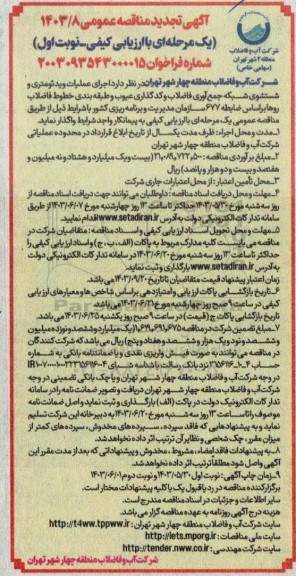 آگهی تجدید مناقصه عمومی ۱۴۰۳/۸
(یک مرحله‌ای با ارزیابی کیفی-نوبت اول)
شماره فراخوان ۲۰۰۳۰۹۳۵۴۳۰۰۰۰۱۵
شرکت آب و فاضلاب
منطقه ۴ شهر تهران
(سهامی خاص)
شرکت آب و فاضلاب منطقه چهار شهر تهران در نظر دارد اجرای عملیات ویدئومتری و
شستشوی شبکه جمع‌آوری فاضلاب و کدگذاری عیوب و طبقه بندی خطوط فاضلاب
روها بر اساس ضابطه ۶۷۷ سازمان مدیریت و برنامه ریزی کشور با شرایط ذیل از طریق
مناقصه عمومی یک مرحله‌ای با ارزیابی کیفی به پیمانکار واجد شرایط واگذار نماید.
۱-مدت و محل اجراء: ظرف مدت یکسال از تاریخ ابلاغ قرارداد در محدوده عملیاتی
شرکت آب و فاضلاب منطقه چهار شهر تهران
۲-مبلغ برآوردی مناقصه: (بیست و یک میلیارد و هشتاد و نه میلیون و
هفتصد و بیست و دو هزار و پانصد) ریال
۳-محل تأمین اعتبار: از محل اعتبارات جاری شرکت
۴-مهلت و محل دریافت اسناد مناقصه: داوطلبان می توانند جهت دریافت اسناد مناقصه از
روز سه شنبه مورخ ۱۴۰۳/۰۵/۳۰ حداکثر تا ساعت ۱۳ روز چهارشنبه مورخ ۱۴۰۳/۰۶/۰۷ از طریق
سامانه تدارکات الکترونیکی دولت به آدرس www.setadiran.ir اقدام نمایند.
۵-مهلت و محل تحویل اسناد ارزیابی کیفی و اسناد مناقصه: متقاضیان شرکت در
مناقصه می بایست کلیه مدارک مربوط به پاکات (الف، ب، ج) و اسناد ارزیابی کیفی را
حداکثر تا ساعت ۱۳ روز سه شنبه مورخ ۱۴۰۳/۰۶/۲۰ در سامانه تدارکات الکترونیکی دولت
به آدرس www.setadiran.ir بارگذاری و ثبت نمایند.
زمان اعتبار پیشنهاد قیمت متقاضیان تا تاریخ ۱۴۰۳/۰۹/۲۰ می باشد.
۶-تاریخ بازگشایی پاکات ارزیابی و امتیازدهی بر اساس شاخص ها و معیارهای ارزیابی
کیفی در ساعت ۹ صبح روز چهارشنبه مورخ ۱۴۰۳/۰۶/۲۱ می باشد.
تاریخ بازگشایی پاکات ج (قیمت) در ساعت ۹ صبح روز یکشنبه ۱۴۰۳/۰۶/۲۵ می باشد.
۷-مبلغ تضمین شرکت در مناقصه (یک میلیارد و ششصد و نوزده میلیون
و ششصد و نود و یک هزار و ششصد و هفتاد و پنج) ریال می باشد که شرکت کنندگان
در مناقصه می توانند به صورت فیش واریزی نقدی و یا ضمانتنامه بانکی به شماره
در وجه شرکت آب و فاضلاب منطقه چهار شهر تهران و یا چک بانکی تضمینی در وجه
شرکت آب و فاضلاب منطقه چهار شهر تهران دریافت و تصویر ضمانت نامه را در سامانه
تدارکات الکترونیک دولت در پاکت (الف) بارگذاری و ثبت نماید و اصل ضمانت نامه
موصوف را تا ساعت ۱۳ روز سه شنبه مورخ ۱۴۰۳/۰۶/۲۰ به دبیرخانه این شرکت تسلیم
نماید و به پیشنهادهایی که فاقد سپرده، سپرده های مخدوش، سپرده های کمتر از
میزان مقرر، چک شخصی و نظایر آن ترتیب اثر داده نخواهد شد.
۸-به پیشنهادات فاقد امضاء، مشروط، مخدوش و پیشنهاداتی که بعد از مدت مقرر این
آگهی واصل شود مطلقاً ترتیب اثر داده نخواهد شد.
۹-زمان چاپ آگهی: نوبت اول ۱۴۰۳/۰۵/۳۰ و نوبت دوم ۱۴۰۳/۰۶/۰۱
برگزار کننده مناقصه در رد یا قبول یک یا کلیه پیشنهادات مختار است.
سایر اطلاعات و جزئیات در اسناد مناقصه مندرج است.
هزینه درج آگهی روزنامه به عهده مناقصه گزار می باشد.
سایت شرکت آب و فاضلاب منطقه چهار شهر تهران: http://t4ww.tpww.ir
سایت ملی مناقصات: http://iets.mporg.ir
سایت شرکت مهندسی: http://tender.nww.co.ir
شرکت آب و فاضلاب منطقه چهار شهر تهران